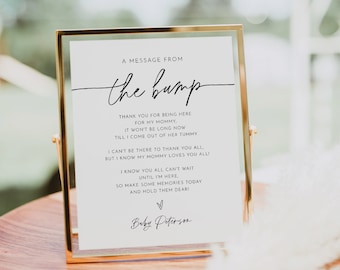 A MESSAGE FROM
the bump
THANK YOU FOR BEING HERE
FOR MY MOMMY,
IT WON'T BE LONG NOW
TILL I COME OUT OF HER TUMMY
I CAN'T BE THERE TO THANK YOU ALL,
BUT I KNOW MY MOMMY LOVES YOU ALL!
I KNOW YOU ALL CAN'T WAIT
UNTIL I'M HERE,
SO MAKE SOME MEMORIES TODAY
AND HOLD THEM DEAR!
Baby Peterson